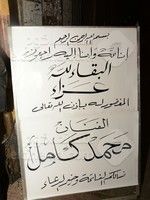 بسم الله الرحمن الرحيم
إنا لله وإنا إليه راجعون
البقاء لله
عزاء
المغفور له بإذن الله تعالى
الفنان
محمد كامل
نسألكم الفاتحة